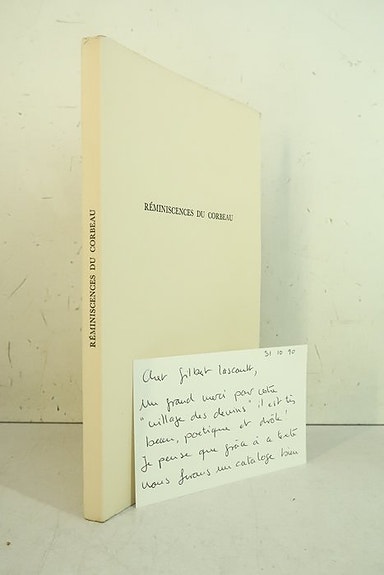 RÉMINISCENCES DU CORBEAU
RÉMINISCENCES DU CORBEAU
31 10 90
Cher Gilbert Lascault,
un grand merci pour votre
"village des devins" il est très
beau, poétique et drôle!
Je pense que grâce à ce texte
nous ferons un catalogue bien